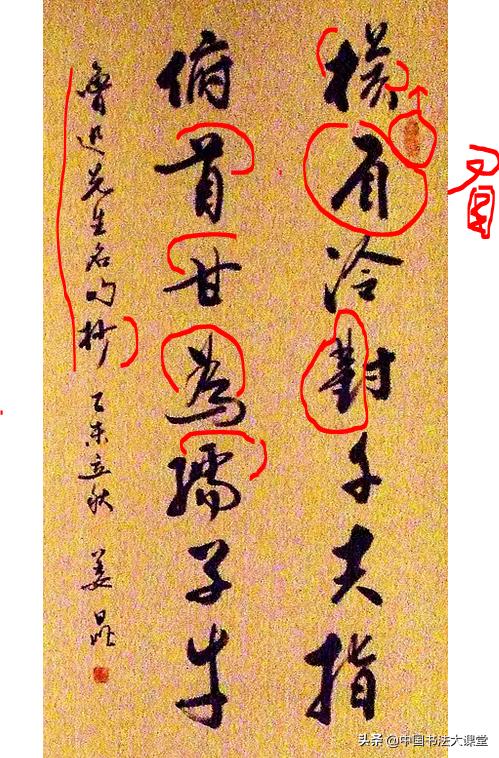 橫眉冷對千夫指
俯首甘為孺子牛
魯迅先生名句抄 乙未立秋 姜昆
眉
头条 @中国书法大课堂